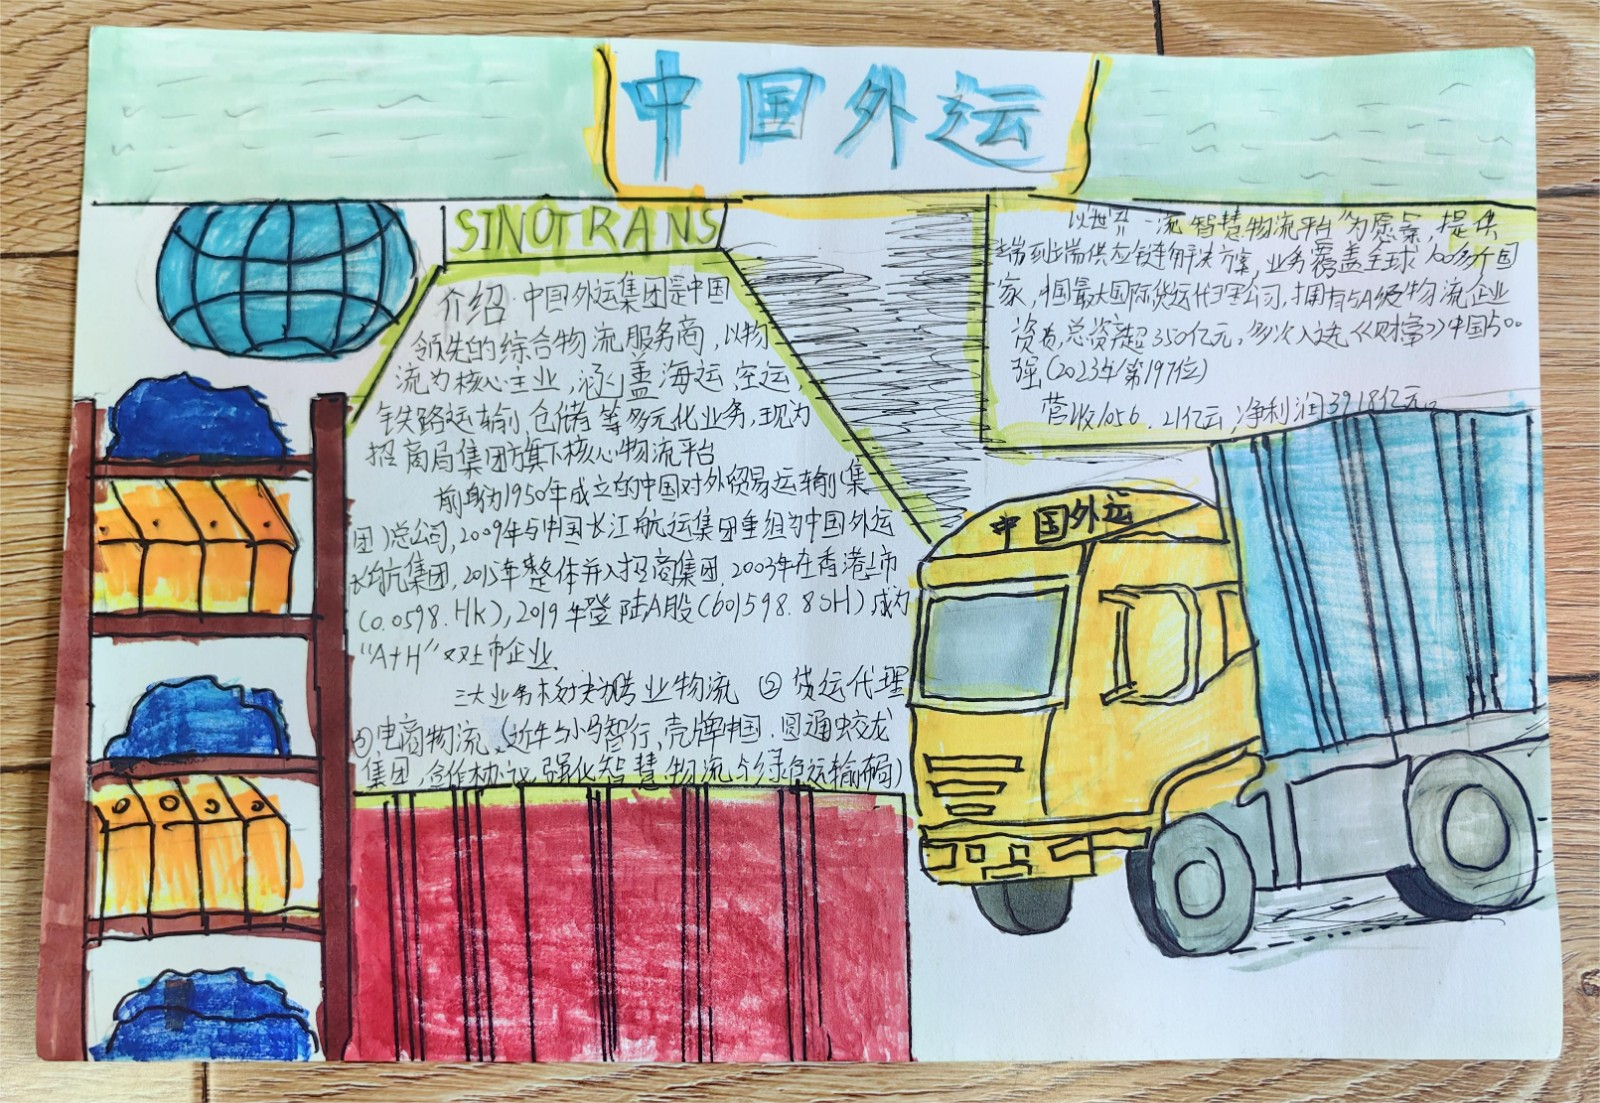 中国外运
SINOTRANS
介绍:中国外运集团是中国
领先的综合物流服务商,以物
流为核心主业,涵盖海运、空运,
铁路运输、仓储等多元化业务,现为
招商局集团旗下核心物流平台
前身为1950年成立的中国对外贸易运输(集
团)总公司,2009年与中国长江航运集团重组为中国外运
长航集团,2015年整体并入招商集团.2003年在香港上市
(0.0598.HK),2019年登陆A股(601598.8SH)成为
"A+H"双上市企业.
三大业务板块 专业物流 ② 货运代理
③电商物流.(近年与小马智行、壳牌中国.圆通蛟龙
集团,合作协议,强化智慧物流与绿色运输)
以世界一流智慧物流平台为愿景,提供
端到端供应链解决方案,业务覆盖全球100多个国
家,中国最大国际货运代理公司,拥有5A级物流企业
资质,总资产超350亿元,多次入选《财富》中国500
强(2023年第197位)
营收1056.21亿元,净利润39.18亿元。
中国外运